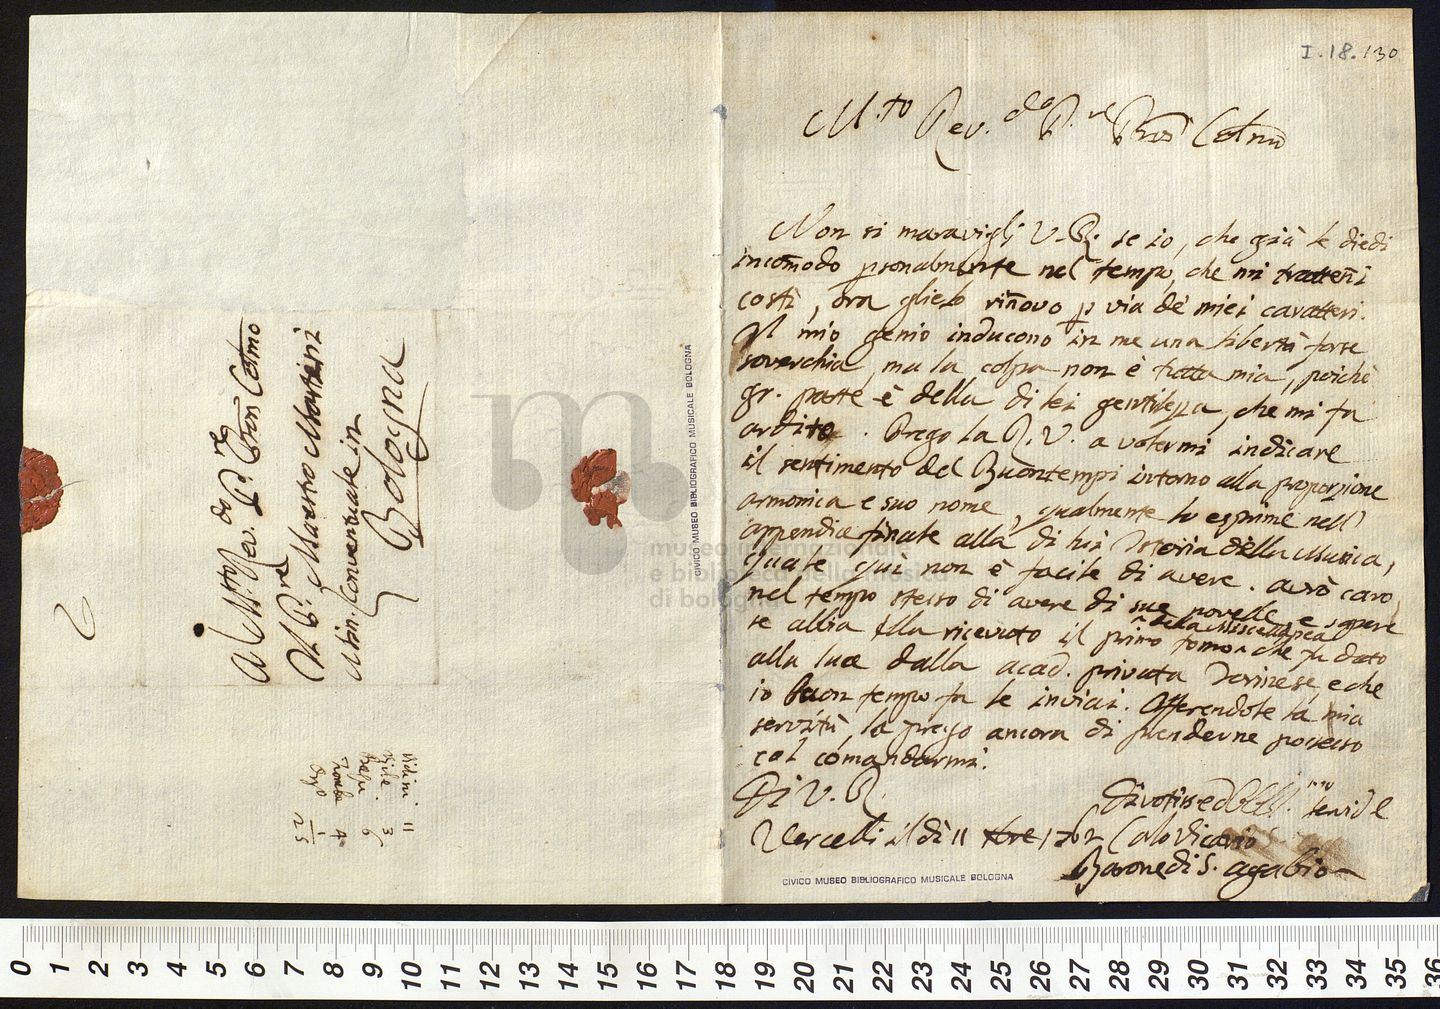 I.18.130
M.to Rev.do P.re Pron Colmo
Non si maravigli V.R. se io, che già le diedi
incomodo psonalmente nel tempo, che mi trattenni
costì, ora glielo rinovo p via de' miei caratteri.
Il mio genio inducono in me una libertà forse
soverchia, ma la colpa non è tutta mia, poichè
gr. parte è della di lei gentilezza, che mi fa
ardito. Prego la R.V. a volermi indicare
il sentimento del Buontempi intorno alla proporzione
armonica e suo nome, qualmente lo esprime nell'
appendice finale alla di lui Istoria della Musica,
quale quì non è facile di avere. avrò caro,
nel tempo stesso di avere di sue novelle, e sapere
se abbia Ella ricevuto il primo tomo della Miscellanea che fu dato
alla luce dalla acad. privata Torinese, e che
io buon tempo fa le inviai. Offerendole la mia
servitù, la prego ancora di prenderne possesso
col comandarmi.
Di V.R.
Vercelli il dì 11 1762
Divotiss ed Obbl.mo Servid.e
Calo Vicario
Barone di S. Agabio
CIVICO MUSEO BIBLIOGRAFICO MUSICALE BOLOGNA
CIVICO MUSEO BIBLIOGRAFICO MUSICALE BOLOGNA
Al M.to Rev.do P.re Pron Colmo
Il P.re Maestro Martini
Min. Conventuale in
Bologna
11
3
6
Tromba 4
1
25
museo internazionale
e biblioteca della musica
di bologna
0 1 2 3 4 5 6 7 8 9 10 11 12 13 14 15 16 17 18 19 20 21 22 23 24 25 26 27 28 29 30 31 32 33 34 35 36